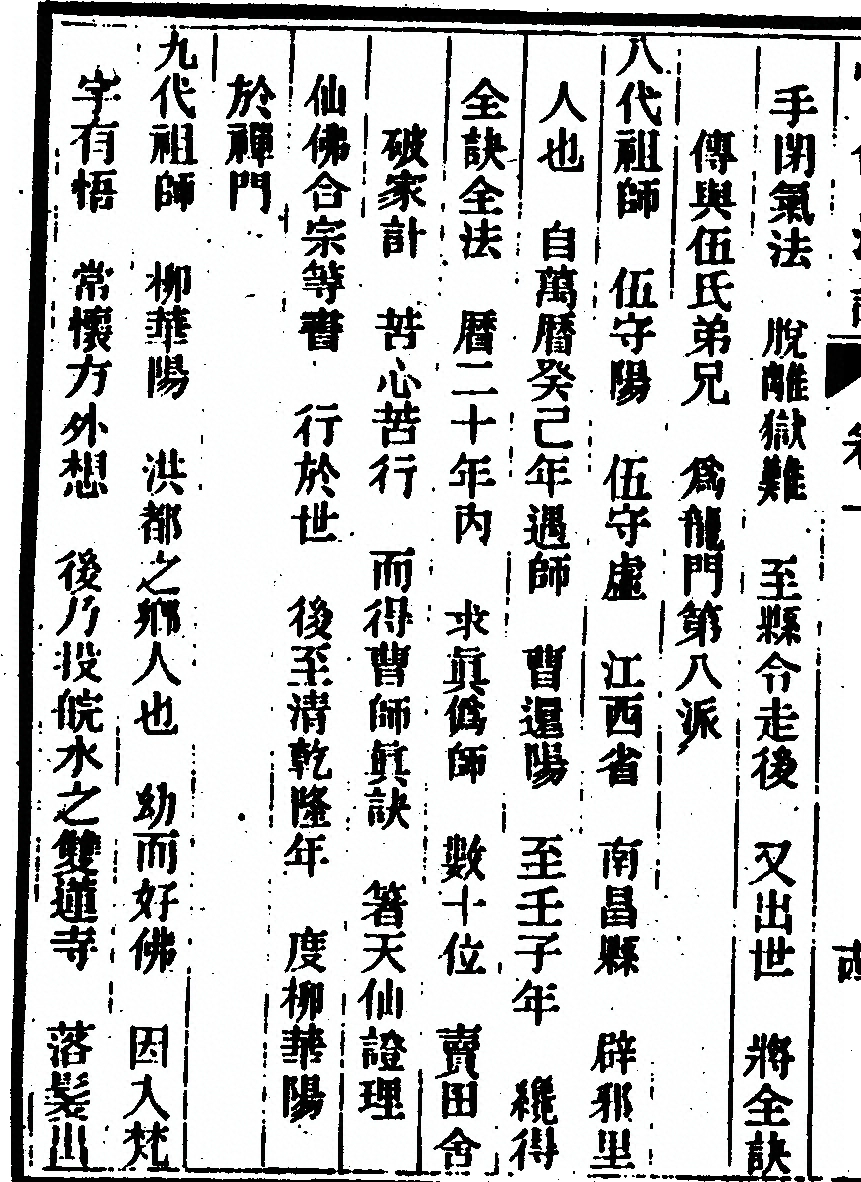 手閉氣法 脫離獄難 至縣令走後 又出世 將全訣
傳與伍氏弟兄 為龍門第八派
八代祖師 伍守陽 伍守虛 江西省 南昌縣 辟邪里
人也 自萬曆癸己年遇師 曹還陽 至壬子年 纔得
全訣全法 曆二十年內 求眞僞師 數十位 賣田舍
破家計 苦心苦行 而得曹師眞訣 著天仙證理
仙佛合宗等書 行於世 後至清乾隆年 度柳華陽
於禪門
九代祖師 柳華陽 洪都之鄉人也 幼而好佛 因入梵
宇有悟 常懷方外想 後乃投皖水之雙蓮寺 落髮出